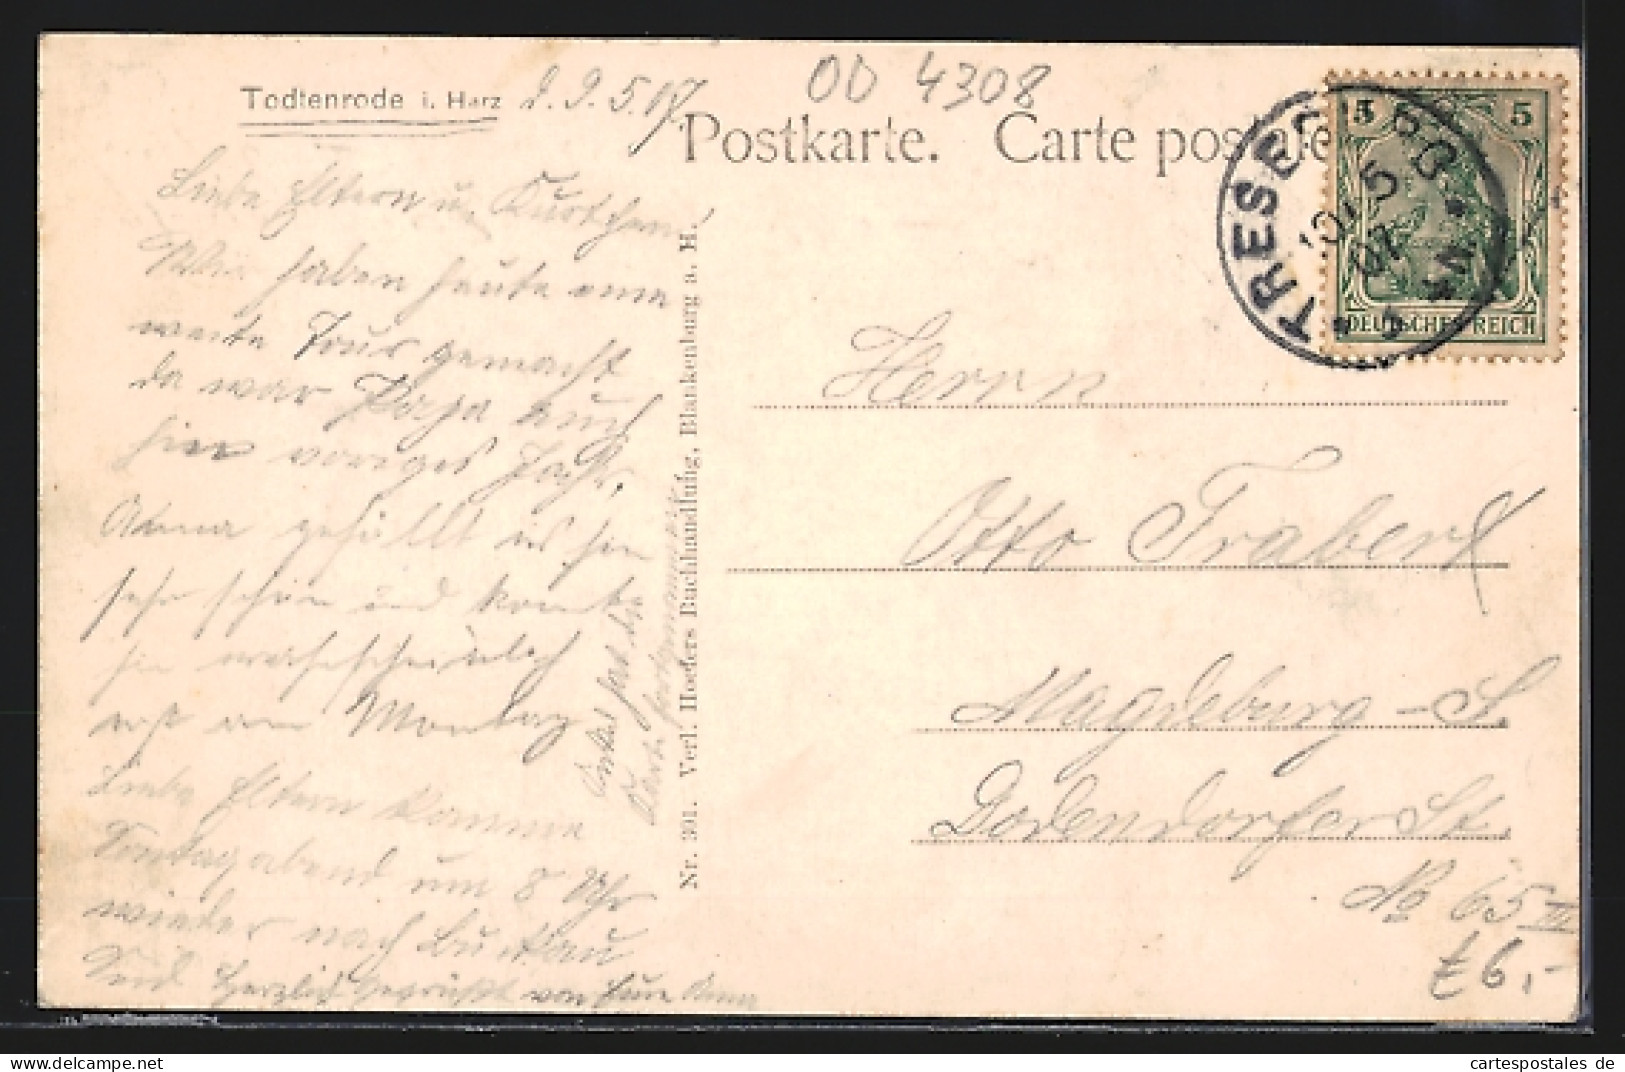 Todtenrode i. Harz d. 9. 5. 07.
OD 4308
Postkarte. Carte postale
TRESEBURG
10/5
07
5 5
DEUTSCHES REICH
Liebe Eltern u. Kurtchen!
Wir haben heute eine
weite Tour gemacht
da war Papa auch
hier voriges Jahr.
Anna gefällt es hier
sehr schön und kommt
sie wahrscheinlich
erst am Montag
Liebe Eltern komme
Sonntag abend um 8 Uhr
wieder nach Buckau
Seid herzlich gegrüßt von Eure Anna
Nr. 301. Verl. Hoefers Buchhandlung, Blankenburg a. H.
Herrn
Otto Trabert
Magdeburg-S.
Dodendorfer St.
No 65 III
£6,-
cartespostales de